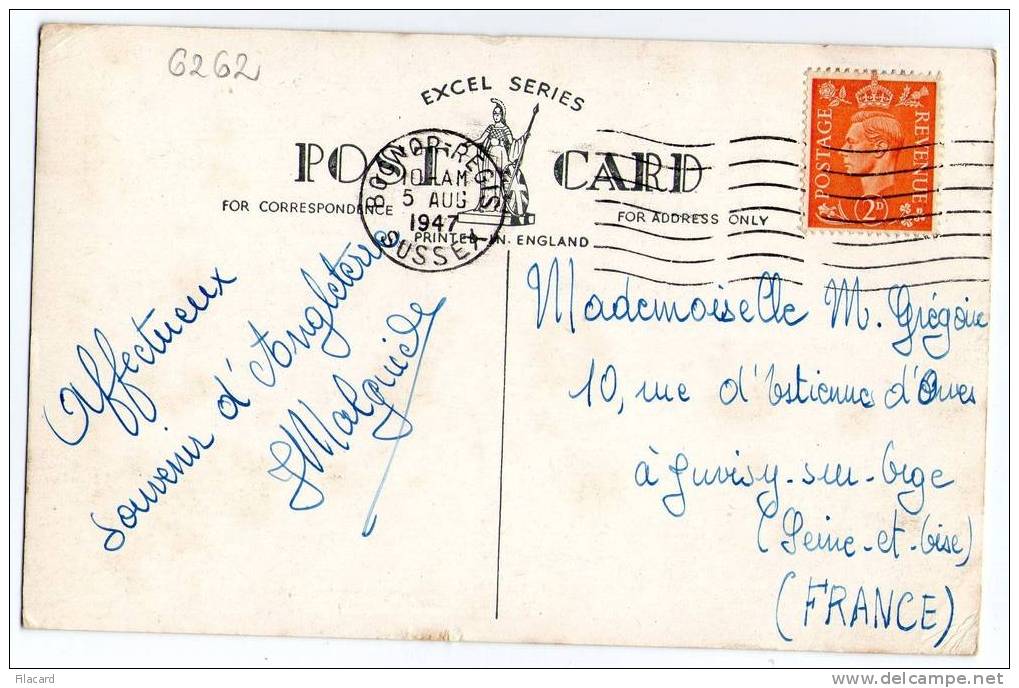 6262
EXCEL SERIES
POST CARD
BOGNOR-REGIS
10 AM
5 AUG
1947
SUSSEX
POSTAGE
REVENUE
2D
FOR CORRESPONDENCE
FOR ADDRESS ONLY
PRINTED IN ENGLAND
Affectueux
souvenir d'Angleterre
Mademoiselle M. Grégoire
10, rue d'Estienne d'Orves
à Juvisy-sur-Orge
(Seine-et-Oise)
(FRANCE)
Filacard
www.delcampe.net